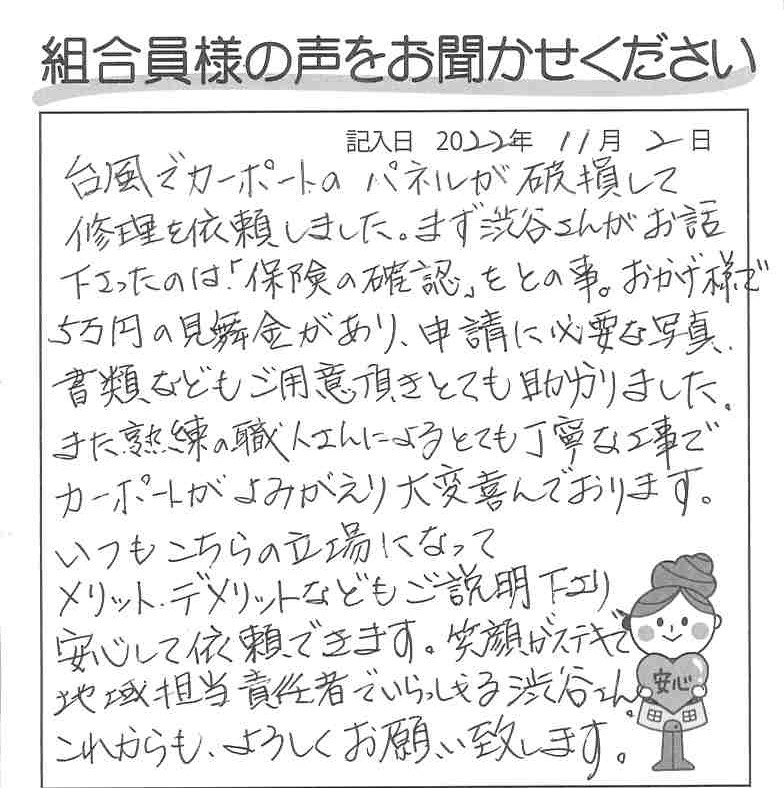 組合員様の声をお聞かせください
記入日 2022年 11月 2日
台風でカーポートの パネルが 破損して
修理を依頼しました。まず渋谷さんがお話
下さったのは「保険の確認」をとの事。おかげ様で
5万円の見舞金があり、申請に必要な写真、
書類などもご用意頂きとても助かりました。
また熟練の職人さんによるとても丁寧な工事で
カーポートがよみがえり大変喜んでおります。
いつもこちらの立場になって
メリット・デメリットなどもご説明下さり
安心して依頼できます。笑顔がステキで
地域担当責任者でいらっしゃる渋谷さん。
これからも、よろしくお願い致します。
安心